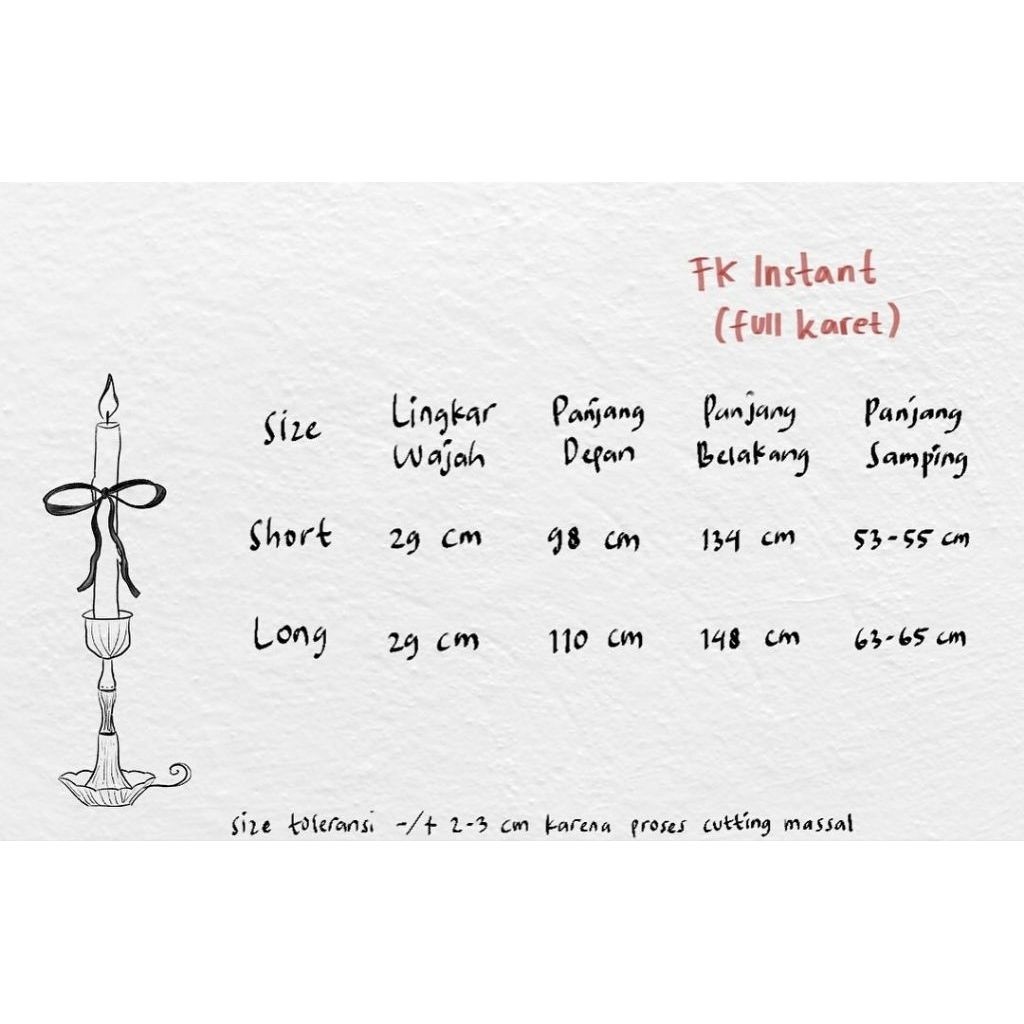 FK Instant
(full karet)
Size Lingkar Wajah Panjang Depan Panjang Belakang Panjang Samping
Short 29 cm 98 cm 134 cm 53-55 cm
Long 29 cm 110 cm 148 cm 63-65 cm
size toleransi -/+ 2-3 cm karena proses cutting massal